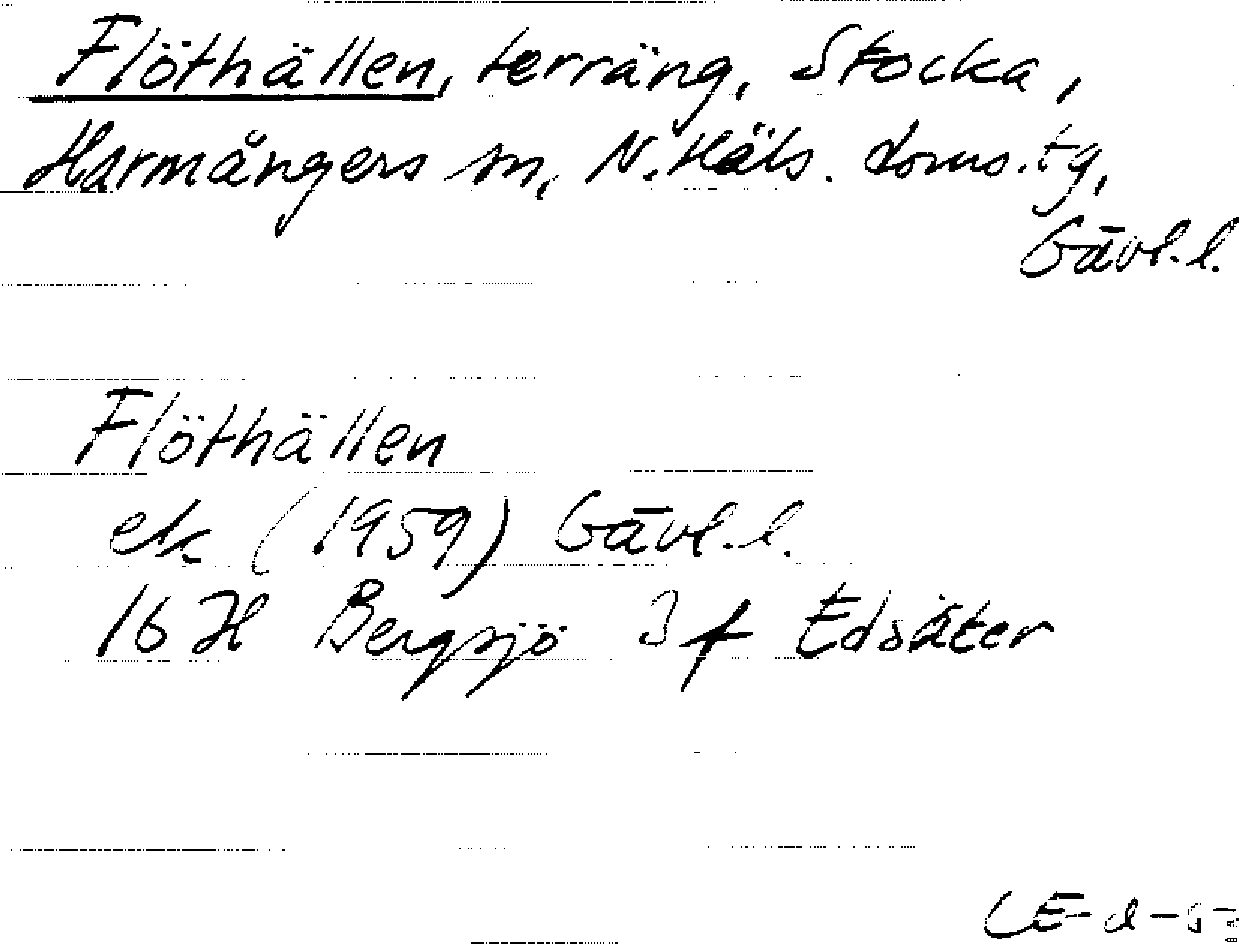 Flöthällen, terräng, Stocka,
Harmångers sn, N. Häls. doms.tg,
Gävl.l.
Flöthällen
ek (1959) Gävl.l.
16 H Bergsjö 3 f Edsäter